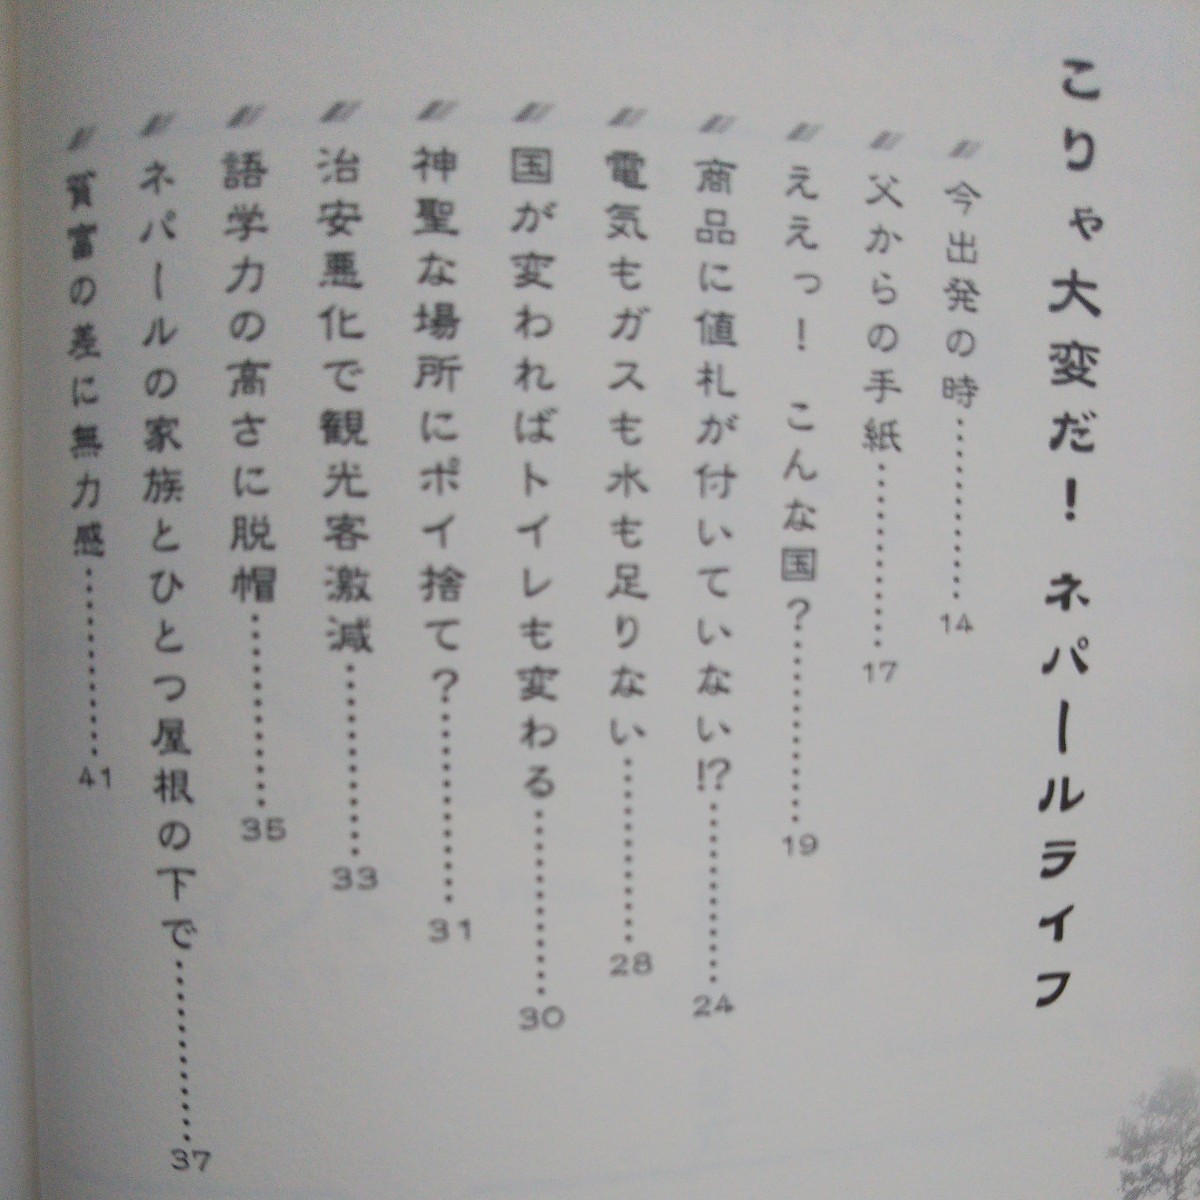 こりゃ大変だ！ネパールライフ
今出発の時…………14
父からの手紙…………17
ええっ！こんな国？…………19
商品に値札が付いていない!?…………24
電気もガスも水も足りない…………28
国が変わればトイレも変わる…………30
神聖な場所にポイ捨て？…………31
治安悪化で観光客激減…………33
語学力の高さに脱帽…………35
ネパールの家族とひとつ屋根の下で…………37
貧富の差に無力感…………41